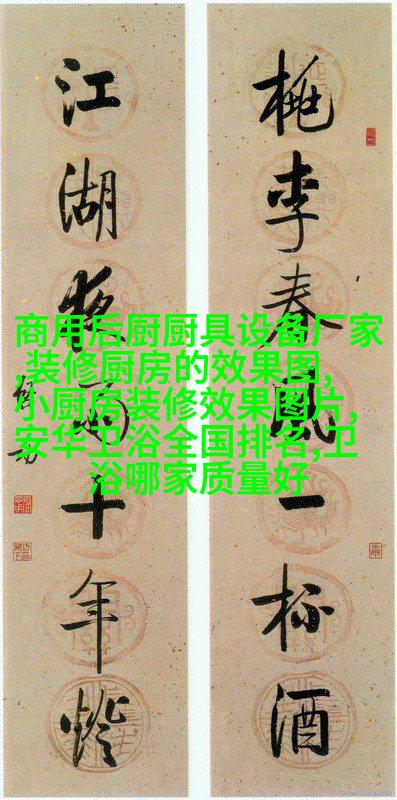 桃李春風一杯酒
江湖夜雨十年燈
商用后厨厨具设备厂家
装修厨房的效果图,
小厨房装修效果图片,
安华卫浴全国排名,卫
浴哪家质量好